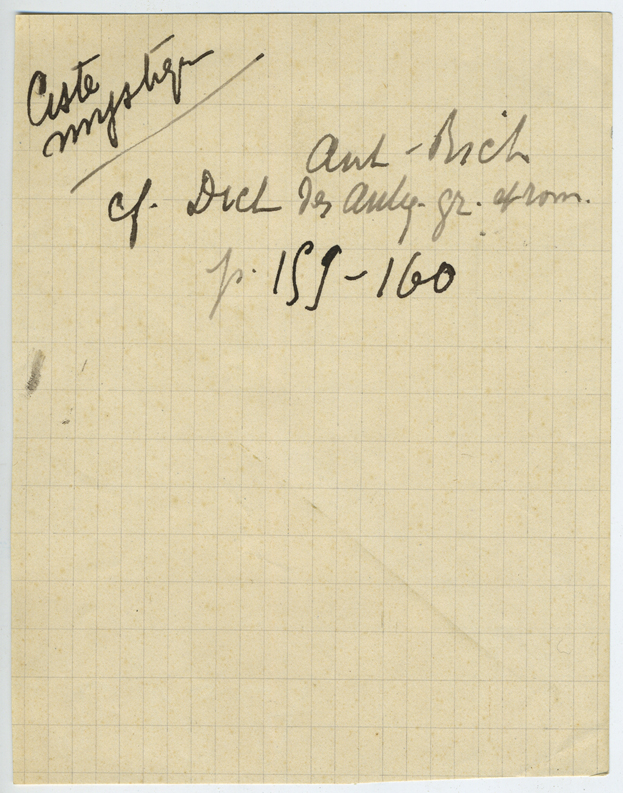 Ciste
mystiq
Ant-Rich
cf. Dict des Antiq. gr. et rom.
p. 159-160